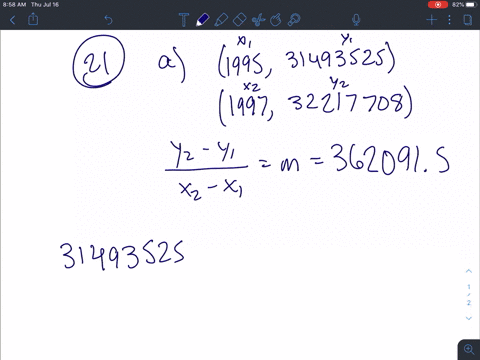 8:58 AM Thu Jul 16
82%
21 a) (1995, 31493525)
x1 y1
(1997, 32217708)
x2 y2
y2 - y1 / x2 - x1 = m = 362091.5
31493525
1 / 2